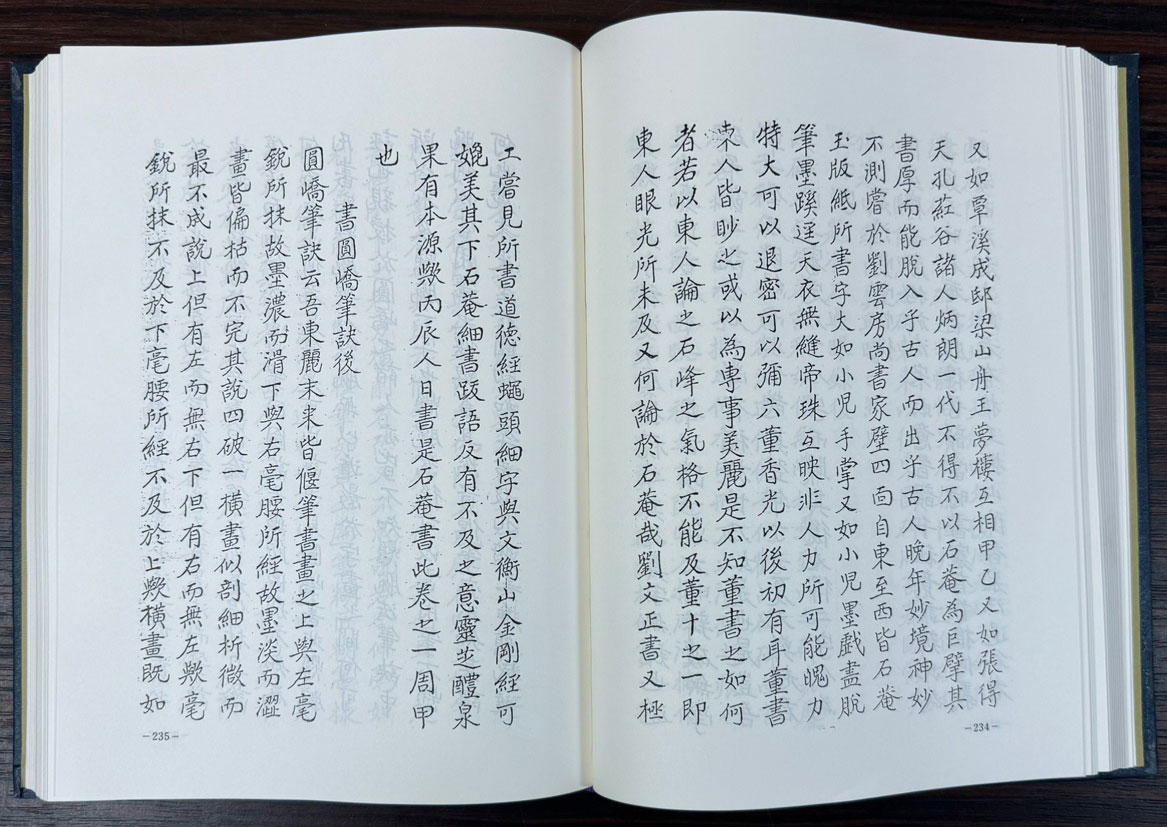 又如覃溪成邸梁山舟王夢樓互相甲乙又如張得
天孔葒谷諸人炳朗一代不得不以石菴為巨擘其
書厚而能脫入乎古人而出乎古人晚年妙境神妙
不測嘗於劉雲房尚書家壁四面自東至西皆石菴
玉版紙所書字大如小児手掌又如小児墨戲盡脫
筆墨蹊逕天衣無縫帝珠互映非人力所可能䰟力
特大可以退密可以彌六董香光以後初有耳董書
東人皆眇之或以為專事美麗是不知董書之如何
者若以東人論之石峰之氣格不能及董十之一即
東人眼光所未及又何論於石菴㢤劉文正書又極
-234-
工嘗見所書道德經蠅頭細字與文衡山金剛經可
媲美其下石菴細書跋語反有不及之意靈芝醴泉
果有本源歟丙辰人日書是石菴書此卷之一周甲
也
書圓嶠筆訣後
圓嶠筆訣云吾東麗末来皆偃筆書畫之上與左毫
銳所抹故墨濃而滑下與右毫腰所經故墨淡而澀
畫皆偏枯而不完其說四破一橫畫似剖細析微而
最不成說上但有左而無右下但有右而無左歟毫
銳所抹不及於下毫腰所經不及於上歟橫畫既如
-235-